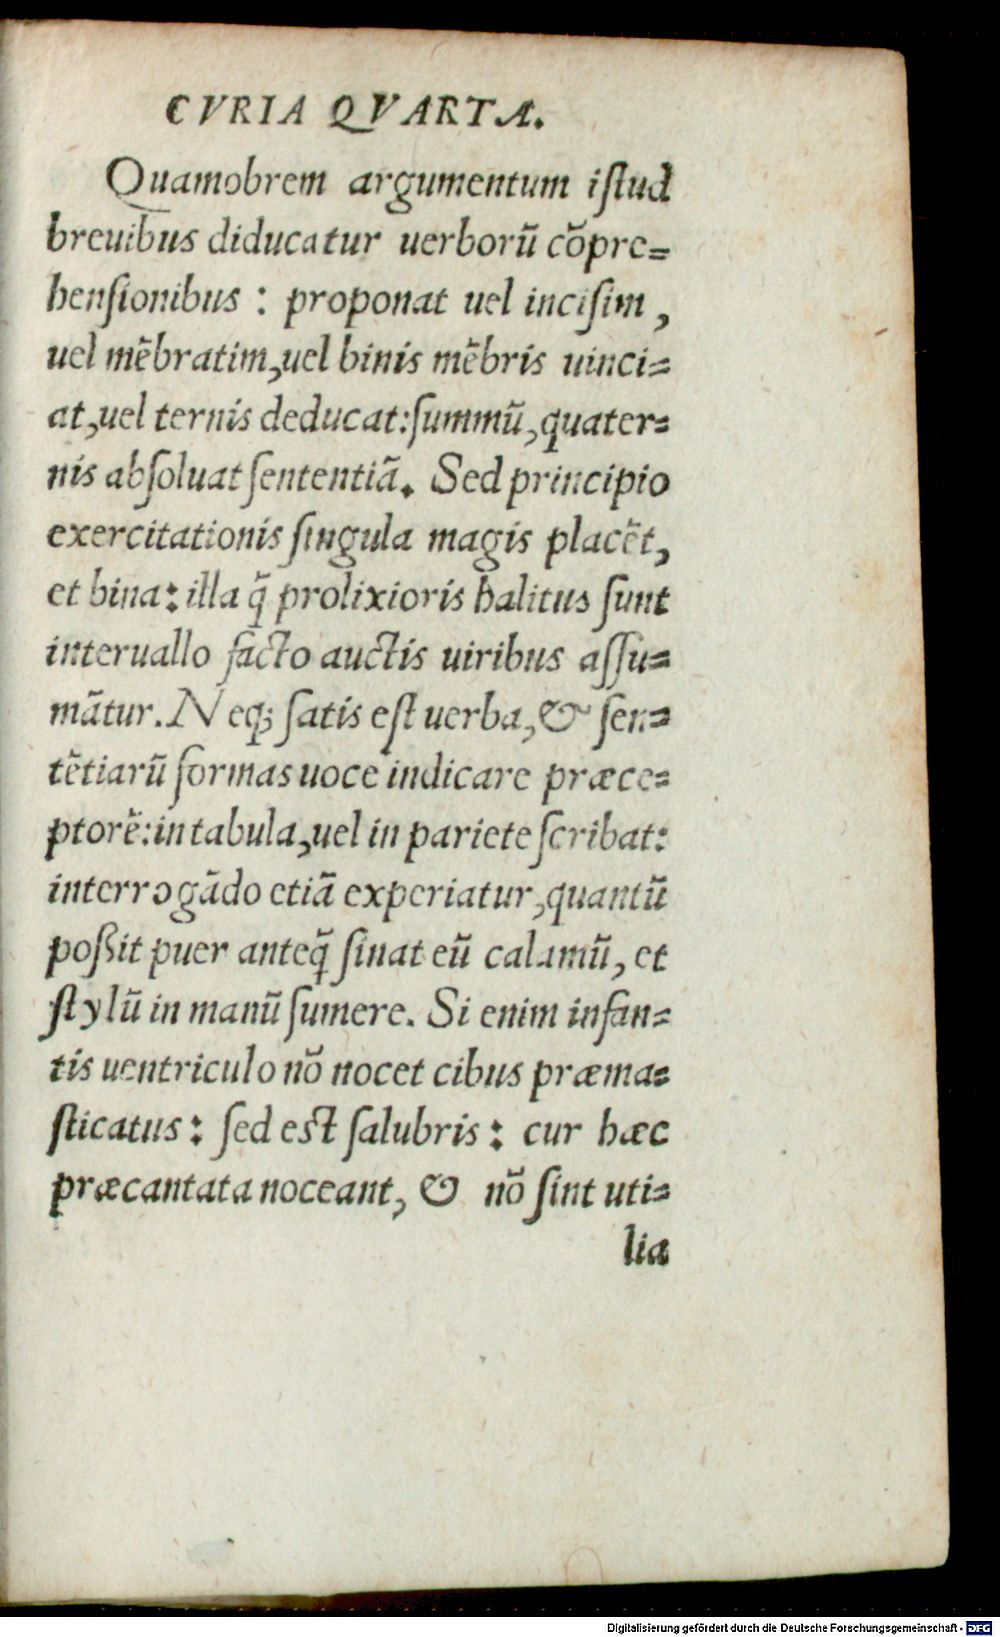 CVRIA QVARTA.
Quamobrem argumentum iſtud
breuibus diducatur uerborũ cõpre=
henſionibus : proponat uel inciſim ,
uel mẽbratim,uel binis mẽbris uinci=
at,uel ternis deducat:ſummũ,quater=
nis abſoluat ſententiã. Sed principio
exercitationis ſingula magis placẽt,
et bina: illa q̃ prolixioris halitus ſunt
interuallo facto auctis uiribus aſſu=
mãtur. Neq; ſatis eſt uerba,& ſen=
tẽtiarũ formas uoce indicare præce=
ptorẽ:in tabula,uel in pariete ſcribat:
interrogãdo etiã experiatur,quantũ
poßit puer anteq̃ ſinat eũ calamũ, et
ſtylũ in manũ ſumere. Si enim infan=
tis uentriculo nõ nocet cibus præma=
ſticatus: ſed eſt ſalubris: cur hæc
præcantata noceant, & nõ ſint uti=
lia
Digitalisierung gefördert durch die Deutsche Forschungsgemeinschaft - DFG